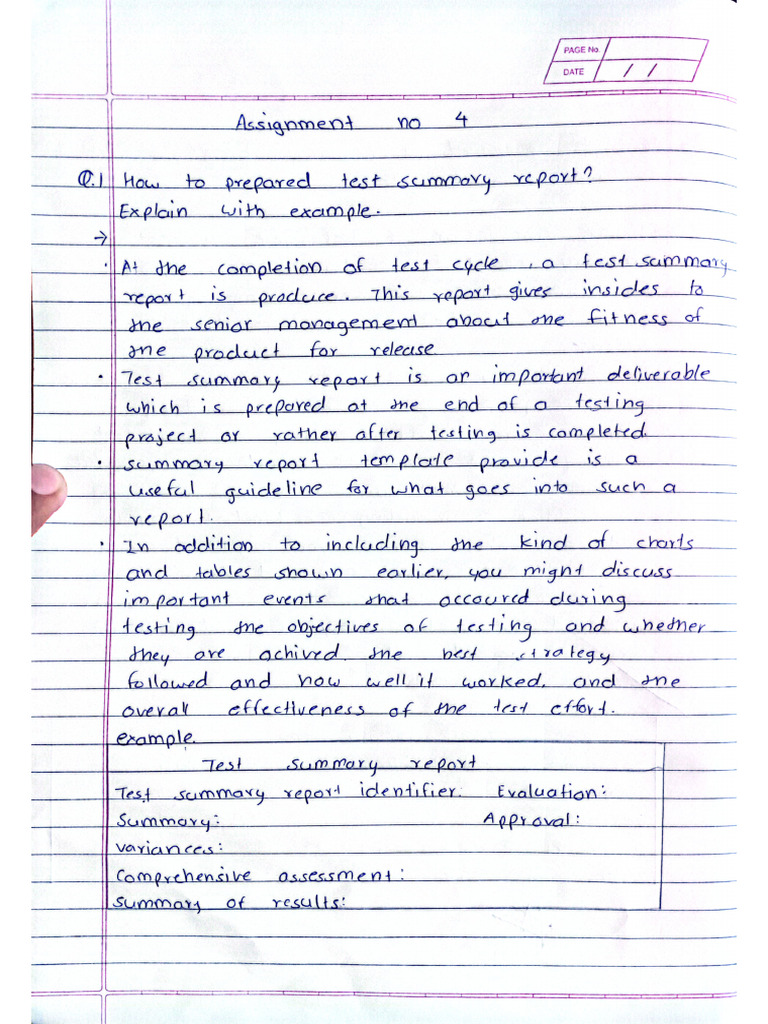 PAGE No.
DATE / /
Assignment no 4
Q.1 How to prepared test summary report?
Explain with example.
→
· At the completion of test cycle, a test summary
report is produce. This report gives insides to
the senior management about the fitness of
the product for release
· Test summary report is an important deliverable
which is prepared at the end of a testing
project or rather after testing is completed.
· summary report template provide is a
useful guideline for what goes into such a
report.
· In addition to including the kind of charts
and tables shown earlier, you might discuss
important events that accoured during
testing the objectives of testing and whether
they are achived. the best strategy
followed and how well it worked, and the
overall effectiveness of the test effort.
example.
Test summary report
Test summary report identifier. Evaluation:
Summary: Approval:
variances:
Comprehensive assessment:
summary of results: